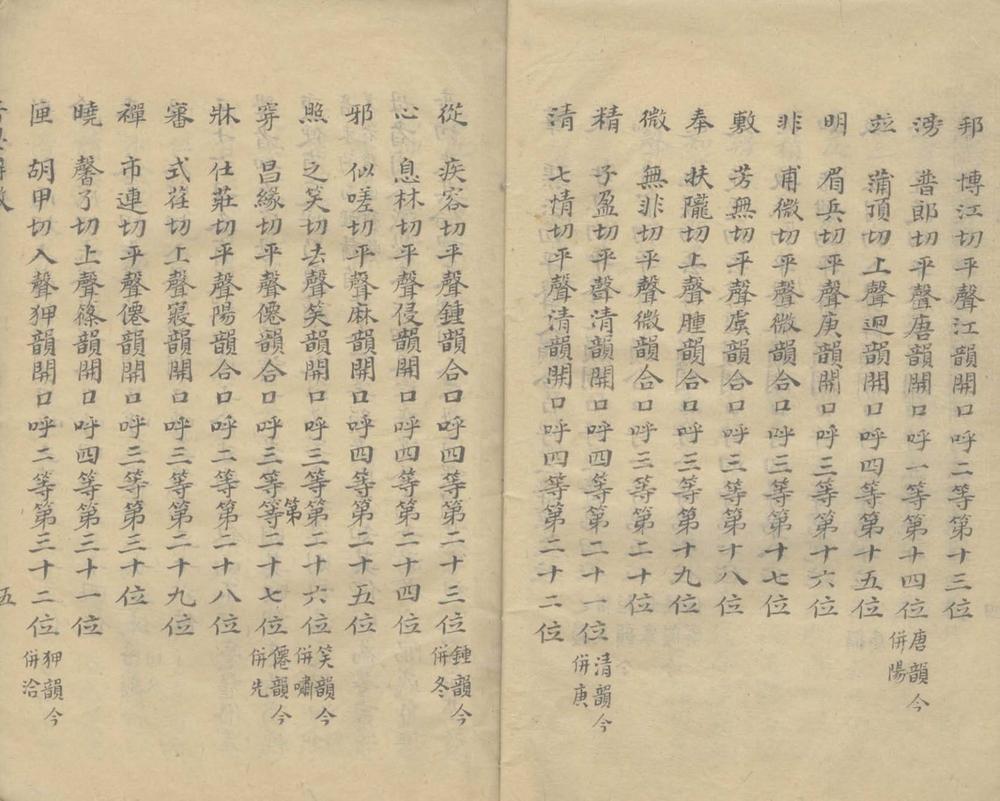 邦 博江切平聲江韻開口呼二等第十三位
滂 普郎切平聲唐韻開口呼一等第十四位唐韻今併陽
並 蒲頂切上聲迥韻開口呼四等第十五位
明 眉兵切平聲庚韻開口呼三等第十六位
非 甫微切平聲微韻合口呼三等第十七位
敷 芳無切平聲虞韻合口呼三等第十八位
奉 扶隴切上聲腫韻合口呼三等第十九位
微 無非切平聲微韻合口呼三等第二十位
精 子盈切平聲清韻開口呼四等第二十一位清韻今併庚
清 七情切平聲清韻開口呼四等第二十二位
從 疾容切平聲鍾韻合口呼四等第二十三位鍾韻今併冬
心 息林切平聲侵韻開口呼四等第二十四位
邪 似嗟切平聲麻韻開口呼四等第二十五位
照 之笑切去聲笑韻開口呼三等第二十六位笑韻今併嘯
穿 昌緣切平聲僊韻合口呼三等等第二十七位僊韻今併先
牀 仕莊切平聲陽韻合口呼二等第二十八位
審 式荏切上聲寢韻開口呼三等第二十九位
禪 市連切平聲僊韻開口呼三等第三十位
曉 馨了切上聲篠韻開口呼四等第三十一位
匣 胡甲切入聲狎韻開口呼二等第三十二位狎韻今併洽
五